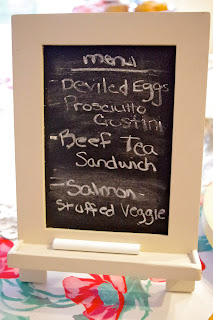 menu
- Deviled Eggs
Prosciutto
Crostini
- Beef Tea
Sandwich
- Salmon -
Stuffed Veggie